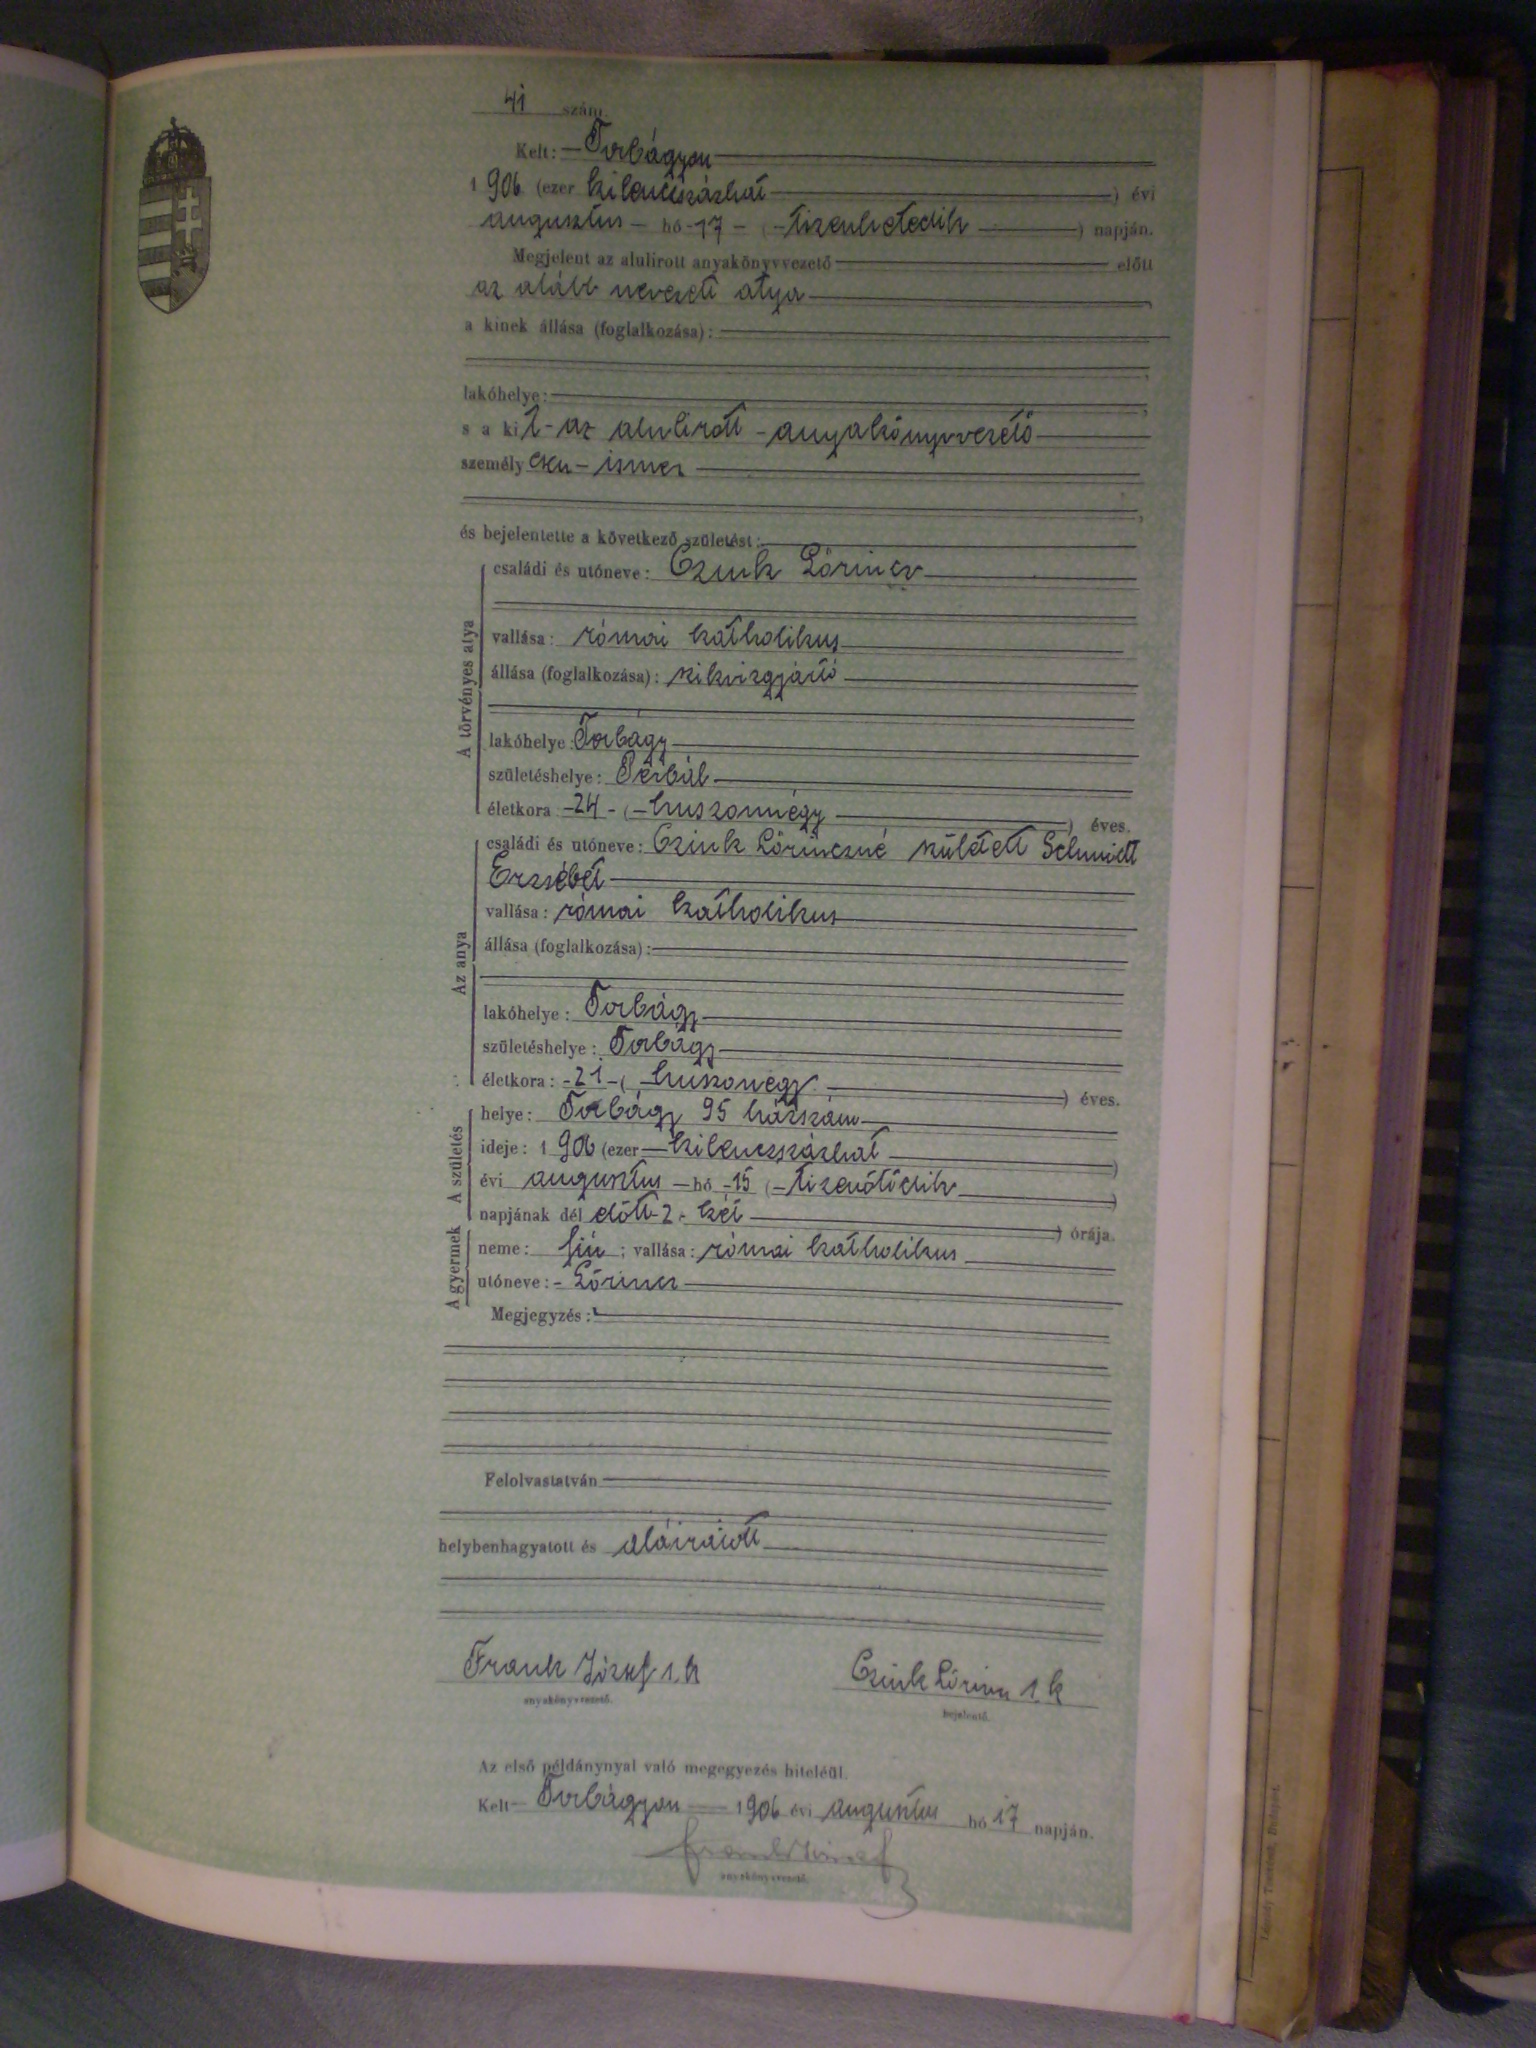 41 szám
Kelt: Torbágyon
1906 (ezer kilenczszázhat) évi
augusztus hó 17 (tizenhetedik) napján.
Megjelent az alulirott anyakönyvvezető előtt
az alább nevezett atya,
a kinek állása (foglalkozása):
lakóhelye:
s a kit az alulirott anyakönyvvezető
személyesen ismer
és bejelentette a következő születést:
A törvényes atya
családi és utóneve: Czink Lőrincz
vallása: római katholikus
állása (foglalkozása): szikvizgyártó
lakóhelye: Torbágy
születéshelye: Perbál
életkora: 24 (huszonnégy) éves.
Az anya
családi és utóneve: Czink Lőrinczné született Schmidt
Erzsébet
vallása: római katholikus
állása (foglalkozása):
lakóhelye: Torbágy
születéshelye: Torbágy
életkora: 21 (huszonegy) éves.
A születés
helye: Torbágy 95 házszám
ideje: 1906 (ezer kilenczszázhat)
évi augusztus hó 15 (tizenötödik)
napjának dél előtt 2 két) órája.
A gyermek
neme: fiú; vallása: római katholikus
utóneve: Lőrincz
Megjegyzés:
Felolvastatván
helybenhagyatott és aláiratott
Frank József s. k. Czink Lőrincz s. k.
anyakönyvvezető. bejelentő.
Az első példánynyal való megegyezés hiteléül.
Kelt Torbágyon 1906 évi augusztus hó 17 napján.
Frank József
anyakönyvvezető.